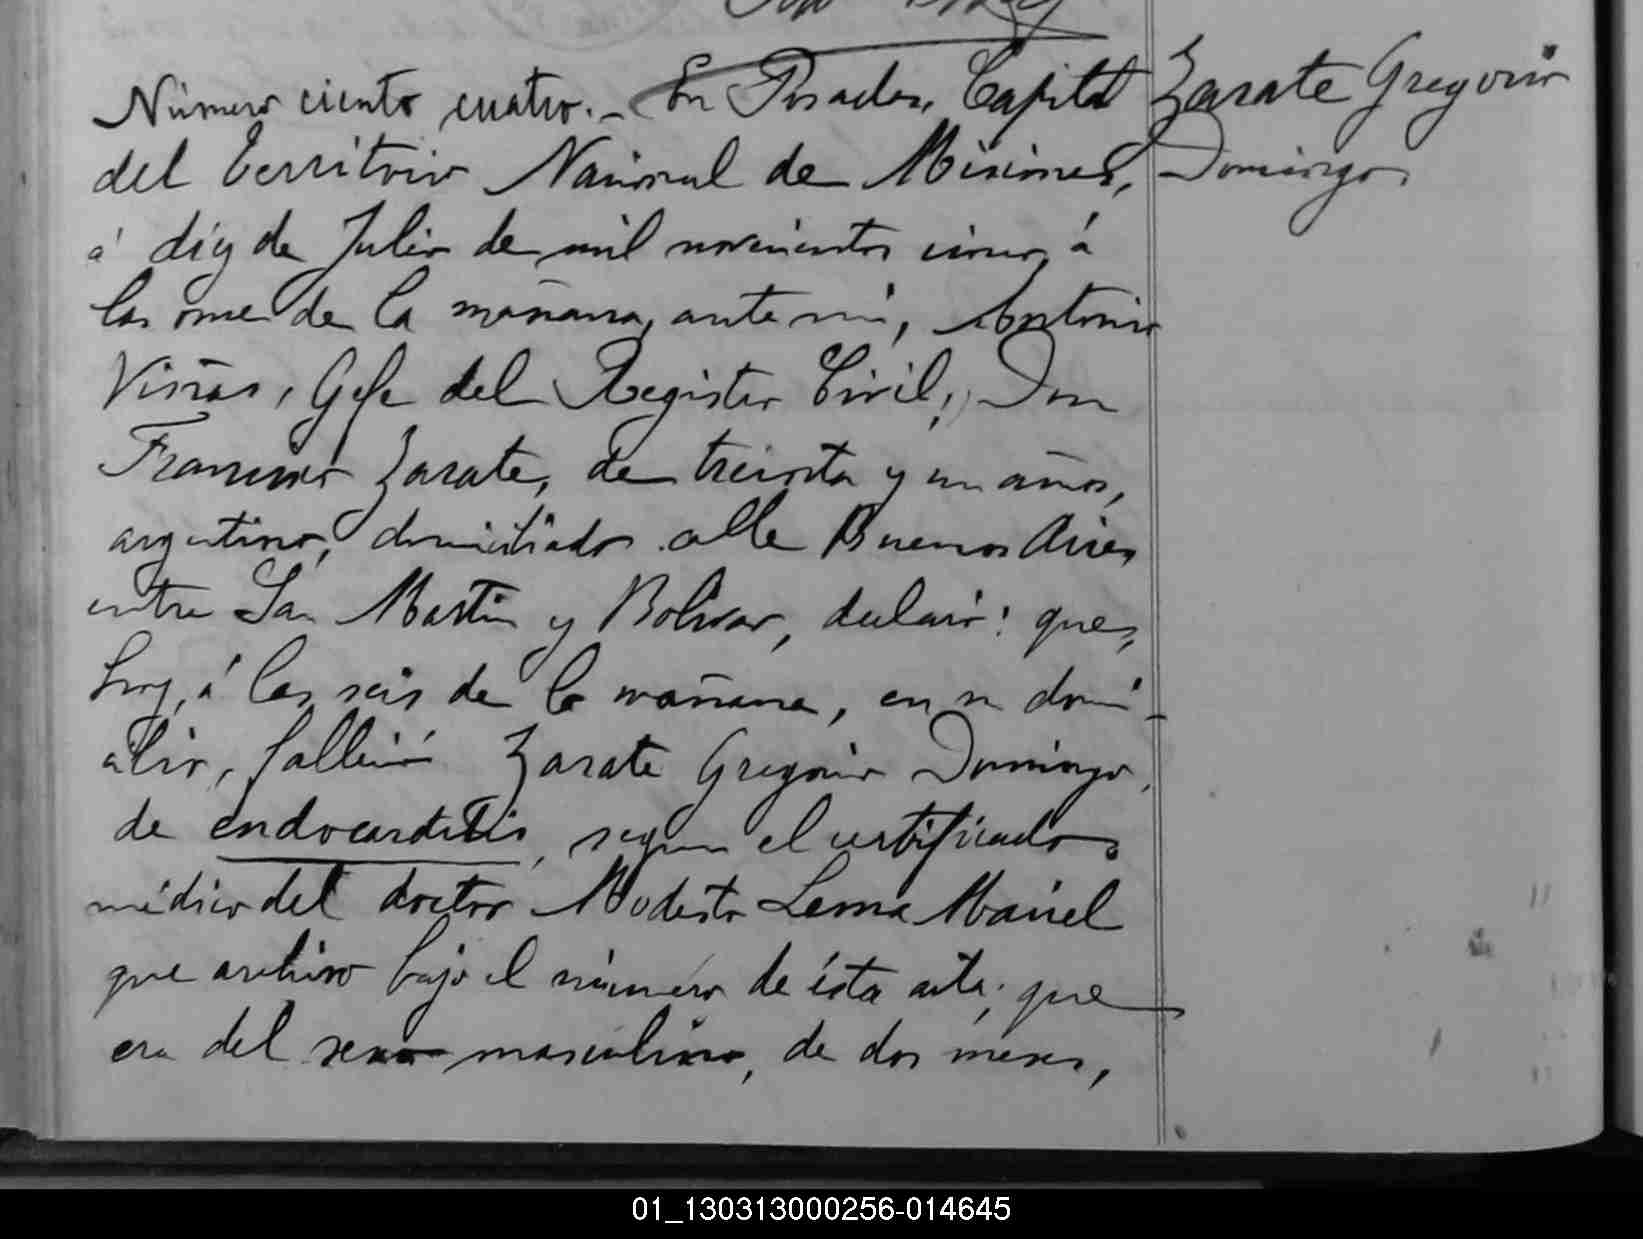 Número ciento cuatro.- En Posadas, Capital
del Territorio Nacional de Misiones,
á diez de Julio de mil novecientos cinco, á
las once de la mañana, ante mí, Antonio
Viñas, Gefe del Registro Civil, Don
Francisco Zarate, de treinta y un años,
argentino, domiciliado calle Buenos Aires
entre San Martin y Bolivar, declaró: que,
hoy, á las seis de la mañana, en su domi-
cilio, falleció Zarate Gregorio Domingo,
de endocarditis, segun el certificado
médico del doctor Modesto Lema Maciel
que archivo bajo el número de ésta acta; que
era del sexo masculino, de dos meses,
Zarate Gregorio
Domingo
01_130313000256-014645